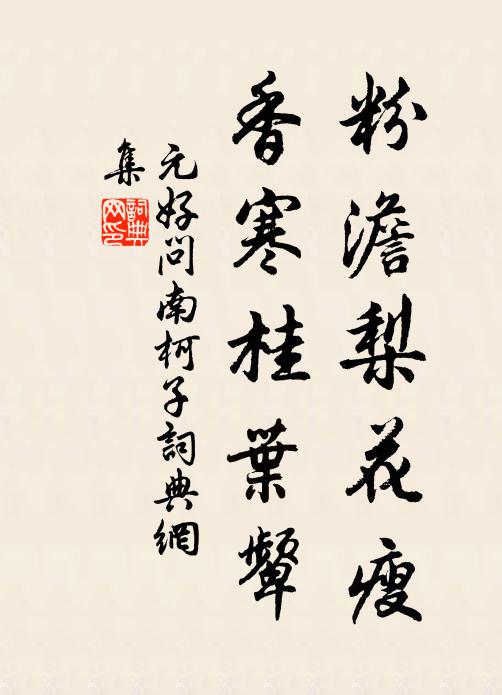 粉澹梨花瘦
香寒桂葉顰
元好问南柯子詞典網
集
詞典
网印